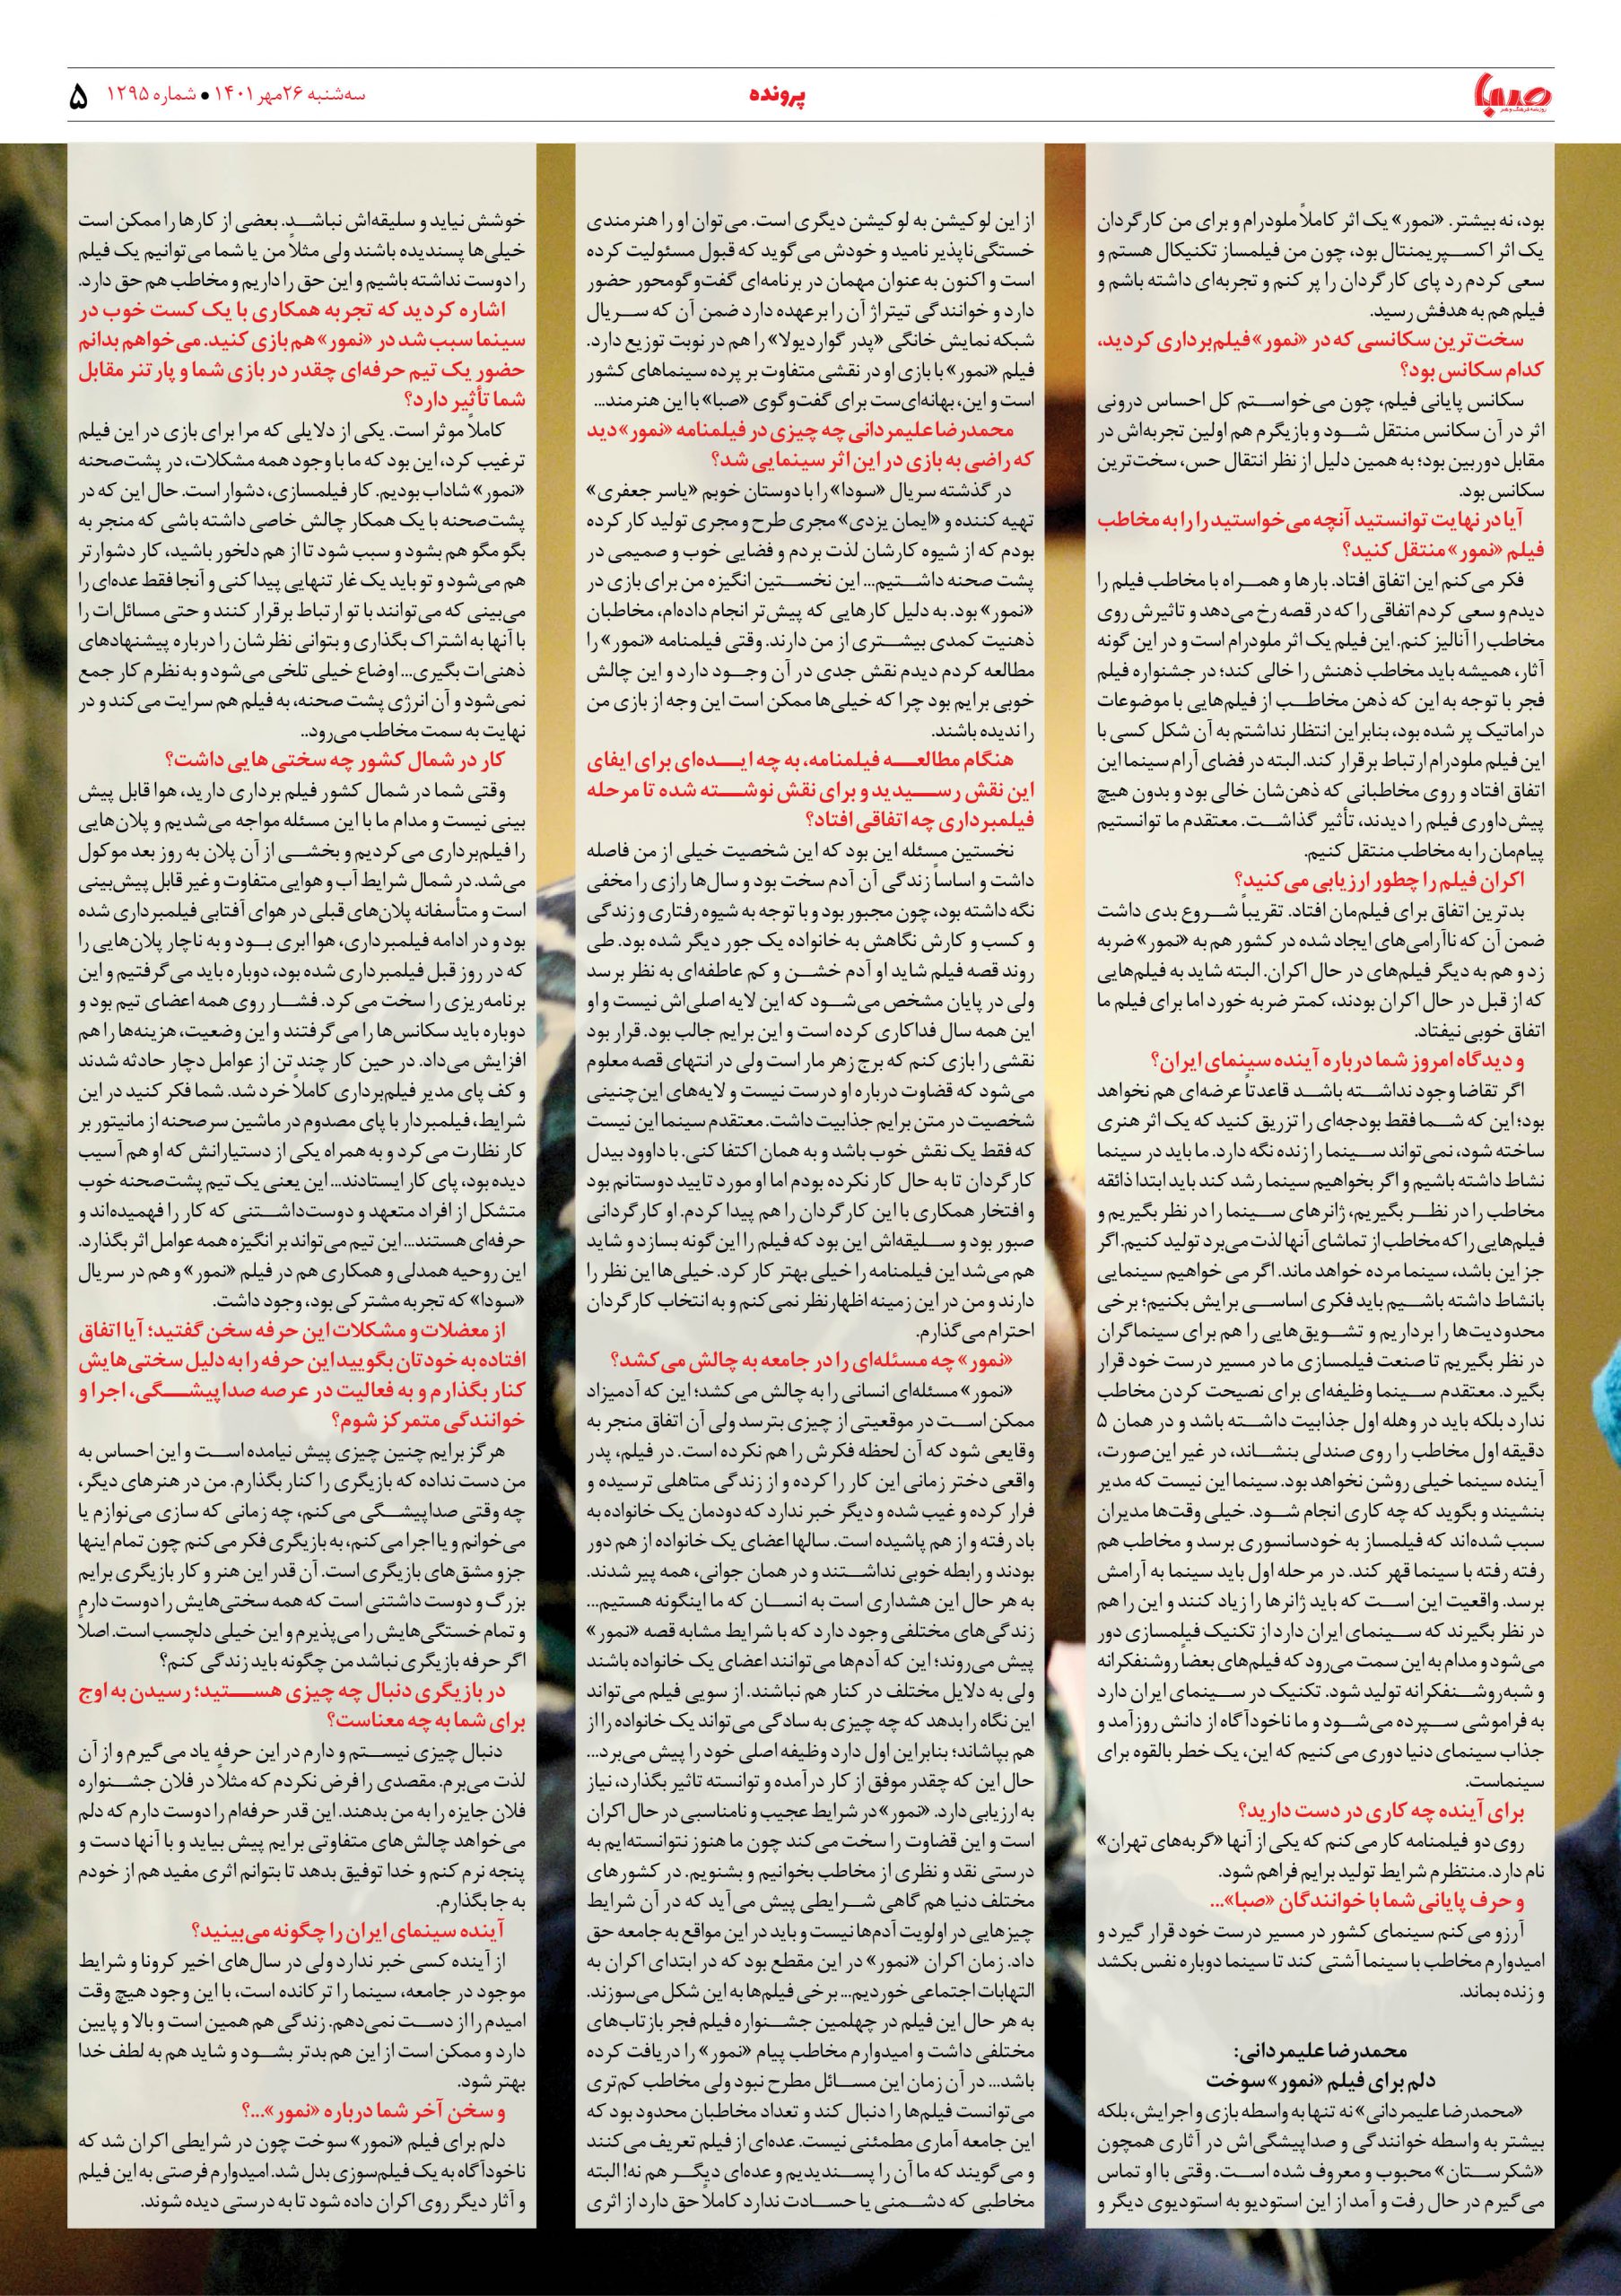 صبا
روزنامه فرهنگ و هنر
پرونده
سه‌شنبه ۲۶مهر ۱۴۰۱ ● شماره ۱۲۹۵
۵
بود، نه بیشتر. «نمور» یک اثر کاملاً ملودرام و برای من کارگردان
یک اثر اکسپریمنتال بود، چون من فیلمساز تکنیکال هستم و
سعی کردم رد پای کارگردان را پر کنم و تجربه‌ای داشته باشم و
فیلم هم به هدفش رسید.
سخت‌ترین سکانسی که در «نمور» فیلم‌برداری کردید،
کدام سکانس بود؟
سکانس پایانی فیلم، چون می‌خواستم کل احساس درونی
اثر در آن سکانس منتقل شود و بازیگرم هم اولین تجربه‌اش در
مقابل دوربین بود؛ به همین دلیل از نظر انتقال حس، سخت‌ترین
سکانس بود.
آیا در نهایت توانستید آنچه می‌خواستید را را به مخاطب
فیلم «نمور» منتقل کنید؟
فکر می‌کنم این اتفاق افتاد. بارها و همراه با مخاطب فیلم را
دیدم و سعی کردم اتفاقی را که در قصه رخ می‌دهد و تاثیرش روی
مخاطب را آنالیز کنم. این فیلم یک اثر ملودرام است و در این گونه
آثار، همیشه باید مخاطب ذهنش را خالی کند؛ در جشنواره فیلم
فجر با توجه به این که ذهن مخاطب از فیلم‌هایی با موضوعات
دراماتیک پر شده بود، بنابراین انتظار نداشتم به آن شکل کسی با
این فیلم ملودرام ارتباط برقرار کند. البته در فضای آرام سینما این
اتفاق افتاد و روی مخاطبانی که ذهن‌شان خالی بود و بدون هیچ
پیش‌داوری فیلم را دیدند، تأثیر گذاشت. معتقدم ما توانستیم
پیام‌مان را به مخاطب منتقل کنیم.
اکران فیلم را چطور ارزیابی می‌کنید؟
بدترین اتفاق برای فیلم‌مان افتاد. تقریباً شروع بدی داشت
ضمن آن که ناآرامی‌های ایجاد شده در کشور هم به «نمور» ضربه
زد و هم به دیگر فیلم‌های در حال اکران. البته شاید به فیلم‌هایی
که از قبل در حال اکران بودند، کمتر ضربه خورد اما برای فیلم ما
اتفاق خوبی نیفتاد.
و دیدگاه امروز شما درباره آینده سینمای ایران؟
اگر تقاضا وجود نداشته باشد قاعدتاً عرضه‌ای هم نخواهد
بود؛ این که شما فقط بودجه‌ای را تزریق کنید که یک اثر هنری
ساخته شود، نمی‌تواند سینما را زنده نگه دارد. ما باید در سینما
نشاط داشته باشیم و اگر بخواهیم سینما رشد کند باید ابتدا ذائقه
مخاطب را در نظر بگیریم، ژانرهای سینما را در نظر بگیریم و
فیلم‌هایی را که مخاطب از تماشای آنها لذت می‌برد تولید کنیم. اگر
جز این باشد، سینما مرده خواهد ماند. اگر می خواهیم سینمایی
بانشاط داشته باشیم باید فکری اساسی برایش بکنیم؛ برخی
محدودیت‌ها را برداریم و تشویق‌هایی را هم برای سینماگران
در نظر بگیریم تا صنعت فیلمسازی ما در مسیر درست خود قرار
بگیرد. معتقدم سینما وظیفه‌ای برای نصیحت کردن مخاطب
ندارد بلکه باید در وهله اول جذابیت داشته باشد و در همان ۵
دقیقه اول مخاطب را روی صندلی بنشاند، در غیر این‌صورت،
آینده سینما خیلی روشن نخواهد بود. سینما این نیست که مدیر
بنشیند و بگوید که چه کاری انجام شود. خیلی وقت‌ها مدیران
سبب شده‌اند که فیلمساز به خودسانسوری برسد و مخاطب هم
رفته رفته با سینما قهر کند. در مرحله اول باید سینما به آرامش
برسد. واقعیت این است که باید ژانرها را زیاد کنند و این را هم
در نظر بگیرند که سینمای ایران دارد از تکنیک فیلمسازی دور
می‌شود و مدام به این سمت می‌رود که فیلم‌های بعضاً روشنفکرانه
و شبه‌روشنفکرانه تولید شود. تکنیک در سینمای ایران دارد
به فراموشی سپرده می‌شود و ما ناخودآگاه از دانش روزآمد و
جذاب سینمای دنیا دوری می‌کنیم که این، یک خطر بالقوه برای
سینماست.
برای آینده چه کاری در دست دارید؟
روی دو فیلمنامه کار می‌کنم که یکی از آنها «گربه‌های تهران»
نام دارد. منتظرم شرایط تولید برایم فراهم شود.
و حرف پایانی شما با خوانندگان «صبا»...
آرزو می‌کنم سینمای کشور در مسیر درست خود قرار گیرد و
امیدوارم مخاطب با سینما آشتی کند تا سینما دوباره نفس بکشد
و زنده بماند.
محمدرضا علیمردانی:
دلم برای فیلم «نمور» سوخت
«محمدرضا علیمردانی» نه تنها به واسطه بازی و اجرایش، بلکه
بیشتر به واسطه خوانندگی و صداپیشگی‌اش در آثاری همچون
«شکرستان» محبوب و معروف شده است. وقتی با او تماس
می‌گیرم در حال رفت و آمد از این استودیو به استودیوی دیگر و
از این لوکیشن به لوکیشن دیگری است. می‌توان او را هنرمندی
خستگی‌ناپذیر نامید و خودش می‌گوید که قبول مسئولیت کرده
است و اکنون به عنوان مهمان در برنامه‌ای گفت‌و‌گومحور حضور
دارد و خوانندگی تیتراژ آن را برعهده دارد ضمن آن که سریال
شبکه نمایش خانگی «پدر گواردیولا» را هم در نوبت توزیع دارد.
فیلم «نمور» با بازی او در نقشی متفاوت بر پرده سینماهای کشور
است و این، بهانه‌ای‌ست برای گفت‌وگوی «صبا» با این هنرمند...
محمدرضا علیمردانی چه چیزی در فیلمنامه «نمور» دید
که راضی به بازی در این اثر سینمایی شد؟
در گذشته سریال «سودا» را با دوستان خوبم «یاسر جعفری»
تهیه کننده و «ایمان یزدی» مجری طرح و مجری تولید کار کرده
بودم که از شیوه کارشان لذت بردم و فضایی خوب و صمیمی در
پشت صحنه داشتیم... این نخستین انگیزه من برای بازی در
«نمور» بود. به دلیل کارهایی که پیش‌تر انجام داده‌ام، مخاطبان
ذهنیت کمدی بیشتری از من دارند. وقتی فیلمنامه «نمور» را
مطالعه کردم دیدم نقش جدی در آن وجود دارد و این چالش
خوبی برایم بود چرا که خیلی‌ها ممکن است این وجه از بازی من
را ندیده باشند.
هنگام مطالعه فیلمنامه، به چه ایده‌ای برای ایفای
این نقش رسیدید و برای نقش نوشته شده تا مرحله
فیلمبرداری چه اتفاقی افتاد؟
نخستین مسئله این بود که این شخصیت خیلی از من فاصله
داشت و اساساً زندگی آن آدم سخت بود و سال‌ها رازی را مخفی
نگه داشته بود، چون مجبور بود و با توجه به شیوه رفتاری و زندگی
و کسب و کارش نگاهش به خانواده یک جور دیگر شده بود. طی
روند قصه فیلم شاید او آدم خشن و کم عاطفه‌ای به نظر برسد
ولی در پایان مشخص می‌شود که این لایه اصلی‌اش نیست و او
این همه سال فداکاری کرده است و این برایم جالب بود. قرار بود
نقشی را بازی کنم که برج زهر مار است ولی در انتهای قصه معلوم
می‌شود که قضاوت درباره او درست نیست و لایه‌های این‌چنینی
شخصیت در متن برایم جذابیت داشت. معتقدم سینما این نیست
که فقط یک نقش خوب باشد و به همان اکتفا کنی. با داوود بیدل
کارگردان تا به حال کار نکرده بودم اما او مورد تایید دوستانم بود
و افتخار همکاری با این کارگردان را هم پیدا کردم. او کارگردانی
صبور بود و سلیقه‌اش این بود که فیلم را این‌گونه بسازد و شاید
هم می‌شد این فیلمنامه را خیلی بهتر کار کرد. خیلی‌ها این نظر را
دارند و من در این زمینه اظهارنظر نمی‌کنم و به انتخاب کارگردان
احترام می‌گذارم.
«نمور» چه مسئله‌ای را در جامعه به چالش می‌کشد؟
«نمور» مسئله‌ای انسانی را به چالش می‌کشد؛ این که آدمیزاد
ممکن است در موقعیتی از چیزی بترسد ولی آن اتفاق منجر به
وقایعی شود که آن لحظه فکرش را هم نکرده است. در فیلم، پدر
واقعی دختر زمانی این کار را کرده و از زندگی متاهلی ترسیده و
فرار کرده و غیب شده و دیگر خبر ندارد که دودمان یک خانواده به
باد رفته و از هم پاشیده است. سالها اعضای یک خانواده از هم دور
بودند و رابطه خوبی نداشتند و در همان جوانی، همه پیر شدند.
به هر حال این هشداری است به انسان که ما اینگونه هستیم...
زندگی‌های مختلفی وجود دارد که با شرایط مشابه قصه «نمور»
پیش می‌روند؛ این که آدم‌ها می‌توانند اعضای یک خانواده باشند
ولی به دلایل مختلف در کنار هم نباشند. از سویی فیلم می‌تواند
این نگاه را بدهد که چه چیزی به سادگی می‌تواند یک خانواده را از
هم بپاشاند؛ بنابراین اول دارد وظیفه اصلی خود را پیش می‌برد...
حال این که چقدر موفق از کار درآمده و توانسته تاثیر بگذارد، نیاز
به ارزیابی دارد. «نمور» در شرایط عجیب و نامناسبی در حال اکران
است و این قضاوت را سخت می‌کند چون ما هنوز نتوانسته‌ایم به
درستی نقد و نظری از مخاطب بخوانیم و بشنویم. در کشورهای
مختلف دنیا هم گاهی شرایطی پیش می‌آید که در آن شرایط
چیزهایی در اولویت آدم‌ها نیست و باید در این مواقع به جامعه حق
داد. زمان اکران «نمور» در این مقطع بود که در ابتدای اکران به
التهابات اجتماعی خوردیم... برخی فیلم‌ها به این شکل می‌سوزند.
به هر حال این فیلم در چهلمین جشنواره فیلم فجر بازتاب‌های
مختلفی داشت و امیدوارم مخاطب پیام «نمور» را دریافت کرده
باشد... در آن زمان این مسائل مطرح نبود ولی مخاطب کم‌تری
می‌توانست فیلم‌ها را دنبال کند و تعداد مخاطبان محدود بود که
این جامعه آماری مطمئنی نیست. عده‌ای از فیلم تعریف می‌کنند
و می‌گویند که ما آن را پسندیدیم و عده‌ای دیگر هم نه! البته
مخاطبی که دشمنی یا حسادت ندارد کاملاً حق دارد از اثری
خوشش نیاید و سلیقه‌اش نباشد. بعضی از کارها را ممکن است
خیلی‌ها پسندیده باشند ولی مثلاً من یا شما می‌توانیم یک فیلم
را دوست نداشته باشیم و این حق را داریم و مخاطب هم حق دارد.
اشاره کردید که تجربه همکاری با یک کست خوب در
سینما سبب شد در «نمور» هم بازی کنید. می‌خواهم بدانم
حضور یک تیم حرفه‌ای چقدر در بازی شما و پارتنر مقابل
شما تأثیر دارد؟
کاملاً موثر است. یکی از دلایلی که مرا برای بازی در این فیلم
ترغیب کرد، این بود که ما با وجود همه مشکلات، در پشت‌صحنه
«نمور» شاداب بودیم. کار فیلمسازی، دشوار است. حال این که در
پشت‌صحنه با یک همکار چالش خاصی داشته باشی که منجر به
بگو مگو هم بشود و سبب شود تا از هم دلخور باشید، کار دشوارتر
هم می‌شود و تو باید یک غار تنهایی پیدا کنی و آنجا فقط عده‌ای را
می‌بینی که می‌توانند با تو ارتباط برقرار کنند و حتی مسائل‌ات را
با آنها به اشتراک بگذاری و بتوانی نظرشان را درباره پیشنهادهای
ذهنی‌ات بگیری... اوضاع خیلی تلخی می‌شود و به نظرم کار جمع
نمی‌شود و آن انرژی پشت صحنه، به فیلم هم سرایت می‌کند و در
نهایت به سمت مخاطب می‌رود..
کار در شمال کشور چه سختی هایی داشت؟
وقتی شما در شمال کشور فیلم برداری دارید، هوا قابل پیش
بینی نیست و مدام ما با این مسئله مواجه می‌شدیم و پلان‌هایی
را فیلم‌برداری می‌کردیم و بخشی از آن پلان به روز بعد موکول
می‌شد. در شمال شرایط آب و هوایی متفاوت و غیر قابل پیش‌بینی
است و متأسفانه پلان‌های قبلی در هوای آفتابی فیلمبرداری شده
بود و در ادامه فیلمبرداری، هوا ابری بود و به ناچار پلان‌هایی را
که در روز قبل فیلمبرداری شده بود، دوباره باید می‌گرفتیم و این
برنامه‌ریزی را سخت می‌کرد. فشار روی همه اعضای تیم بود و
دوباره باید سکانس‌ها را می‌گرفتند و این وضعیت، هزینه‌ها را هم
افزایش می‌داد. در حین کار چند تن از عوامل دچار حادثه شدند
و کف پای مدیر فیلم‌برداری کاملاً خرد شد. شما فکر کنید در این
شرایط، فیلمبردار با پای مصدوم در ماشین سرصحنه از مانیتور بر
کار نظارت می‌کرد و به همراه یکی از دستیارانش که او هم آسیب
دیده بود، پای کار ایستادند... این یعنی یک تیم پشت‌صحنه خوب
متشکل از افراد متعهد و دوست‌داشتنی که کار را فهمیده‌اند و
حرفه‌ای هستند... این تیم می‌تواند بر انگیزه همه عوامل اثر بگذارد.
این روحیه همدلی و همکاری هم در فیلم «نمور» و هم در سریال
«سودا» که تجربه مشترکی بود، وجود داشت.
از معضلات و مشکلات این حرفه سخن گفتید؛ آیا اتفاق
افتاده به خودتان بگویید این حرفه را به دلیل سختی‌هایش
کنار بگذارم و به فعالیت در عرصه صداپیشگی، اجرا و
خوانندگی متمرکز شوم؟
هرگز برایم چنین چیزی پیش نیامده است و این احساس به
من دست نداده که بازیگری را کنار بگذارم. من در هنرهای دیگر،
چه وقتی صداپیشگی می‌کنم، چه زمانی که سازی می‌نوازم یا
می‌خوانم و یا اجرا می کنم، به بازیگری فکر می‌کنم چون تمام اینها
جزو مشق‌های بازیگری است. آن قدر این هنر و کار بازیگری برایم
بزرگ و دوست داشتنی است که همه سختی‌هایش را دوست دارم
و تمام خستگی‌هایش را می‌پذیرم و این خیلی دلچسب است. اصلاً
اگر حرفه بازیگری نباشد من چگونه باید زندگی کنم؟
در بازیگری دنبال چه چیزی هستید؛ رسیدن به اوج
برای شما به چه معناست؟
دنبال چیزی نیستم و دارم در این حرفه یاد می‌گیرم و از آن
لذت می‌برم. مقصدی را فرض نکردم که مثلاً در فلان جشنواره
فلان جایزه را به من بدهند. این قدر حرفه‌ام را دوست دارم که دلم
می‌خواهد چالش‌های متفاوتی برایم پیش بیاید و با آنها دست و
پنجه نرم کنم و خدا توفیق بدهد تا بتوانم اثری مفید هم از خودم
به جا بگذارم.
آینده سینمای ایران را چگونه می‌بینید؟
از آینده کسی خبر ندارد ولی در سال‌های اخیر کرونا و شرایط
موجود در جامعه، سینما را ترکانده است، با این وجود هیچ وقت
امیدم را از دست نمی‌دهم. زندگی هم همین است و بالا و پایین
دارد و ممکن است از این هم بدتر بشود و شاید هم به لطف خدا
بهتر شود.
و سخن آخر شما درباره «نمور»...؟
دلم برای فیلم «نمور» سوخت چون در شرایطی اکران شد که
ناخودآگاه به یک فیلم‌سوزی بدل شد. امیدوارم فرصتی به این فیلم
و آثار دیگر روی اکران داده شود تا به درستی دیده شوند.